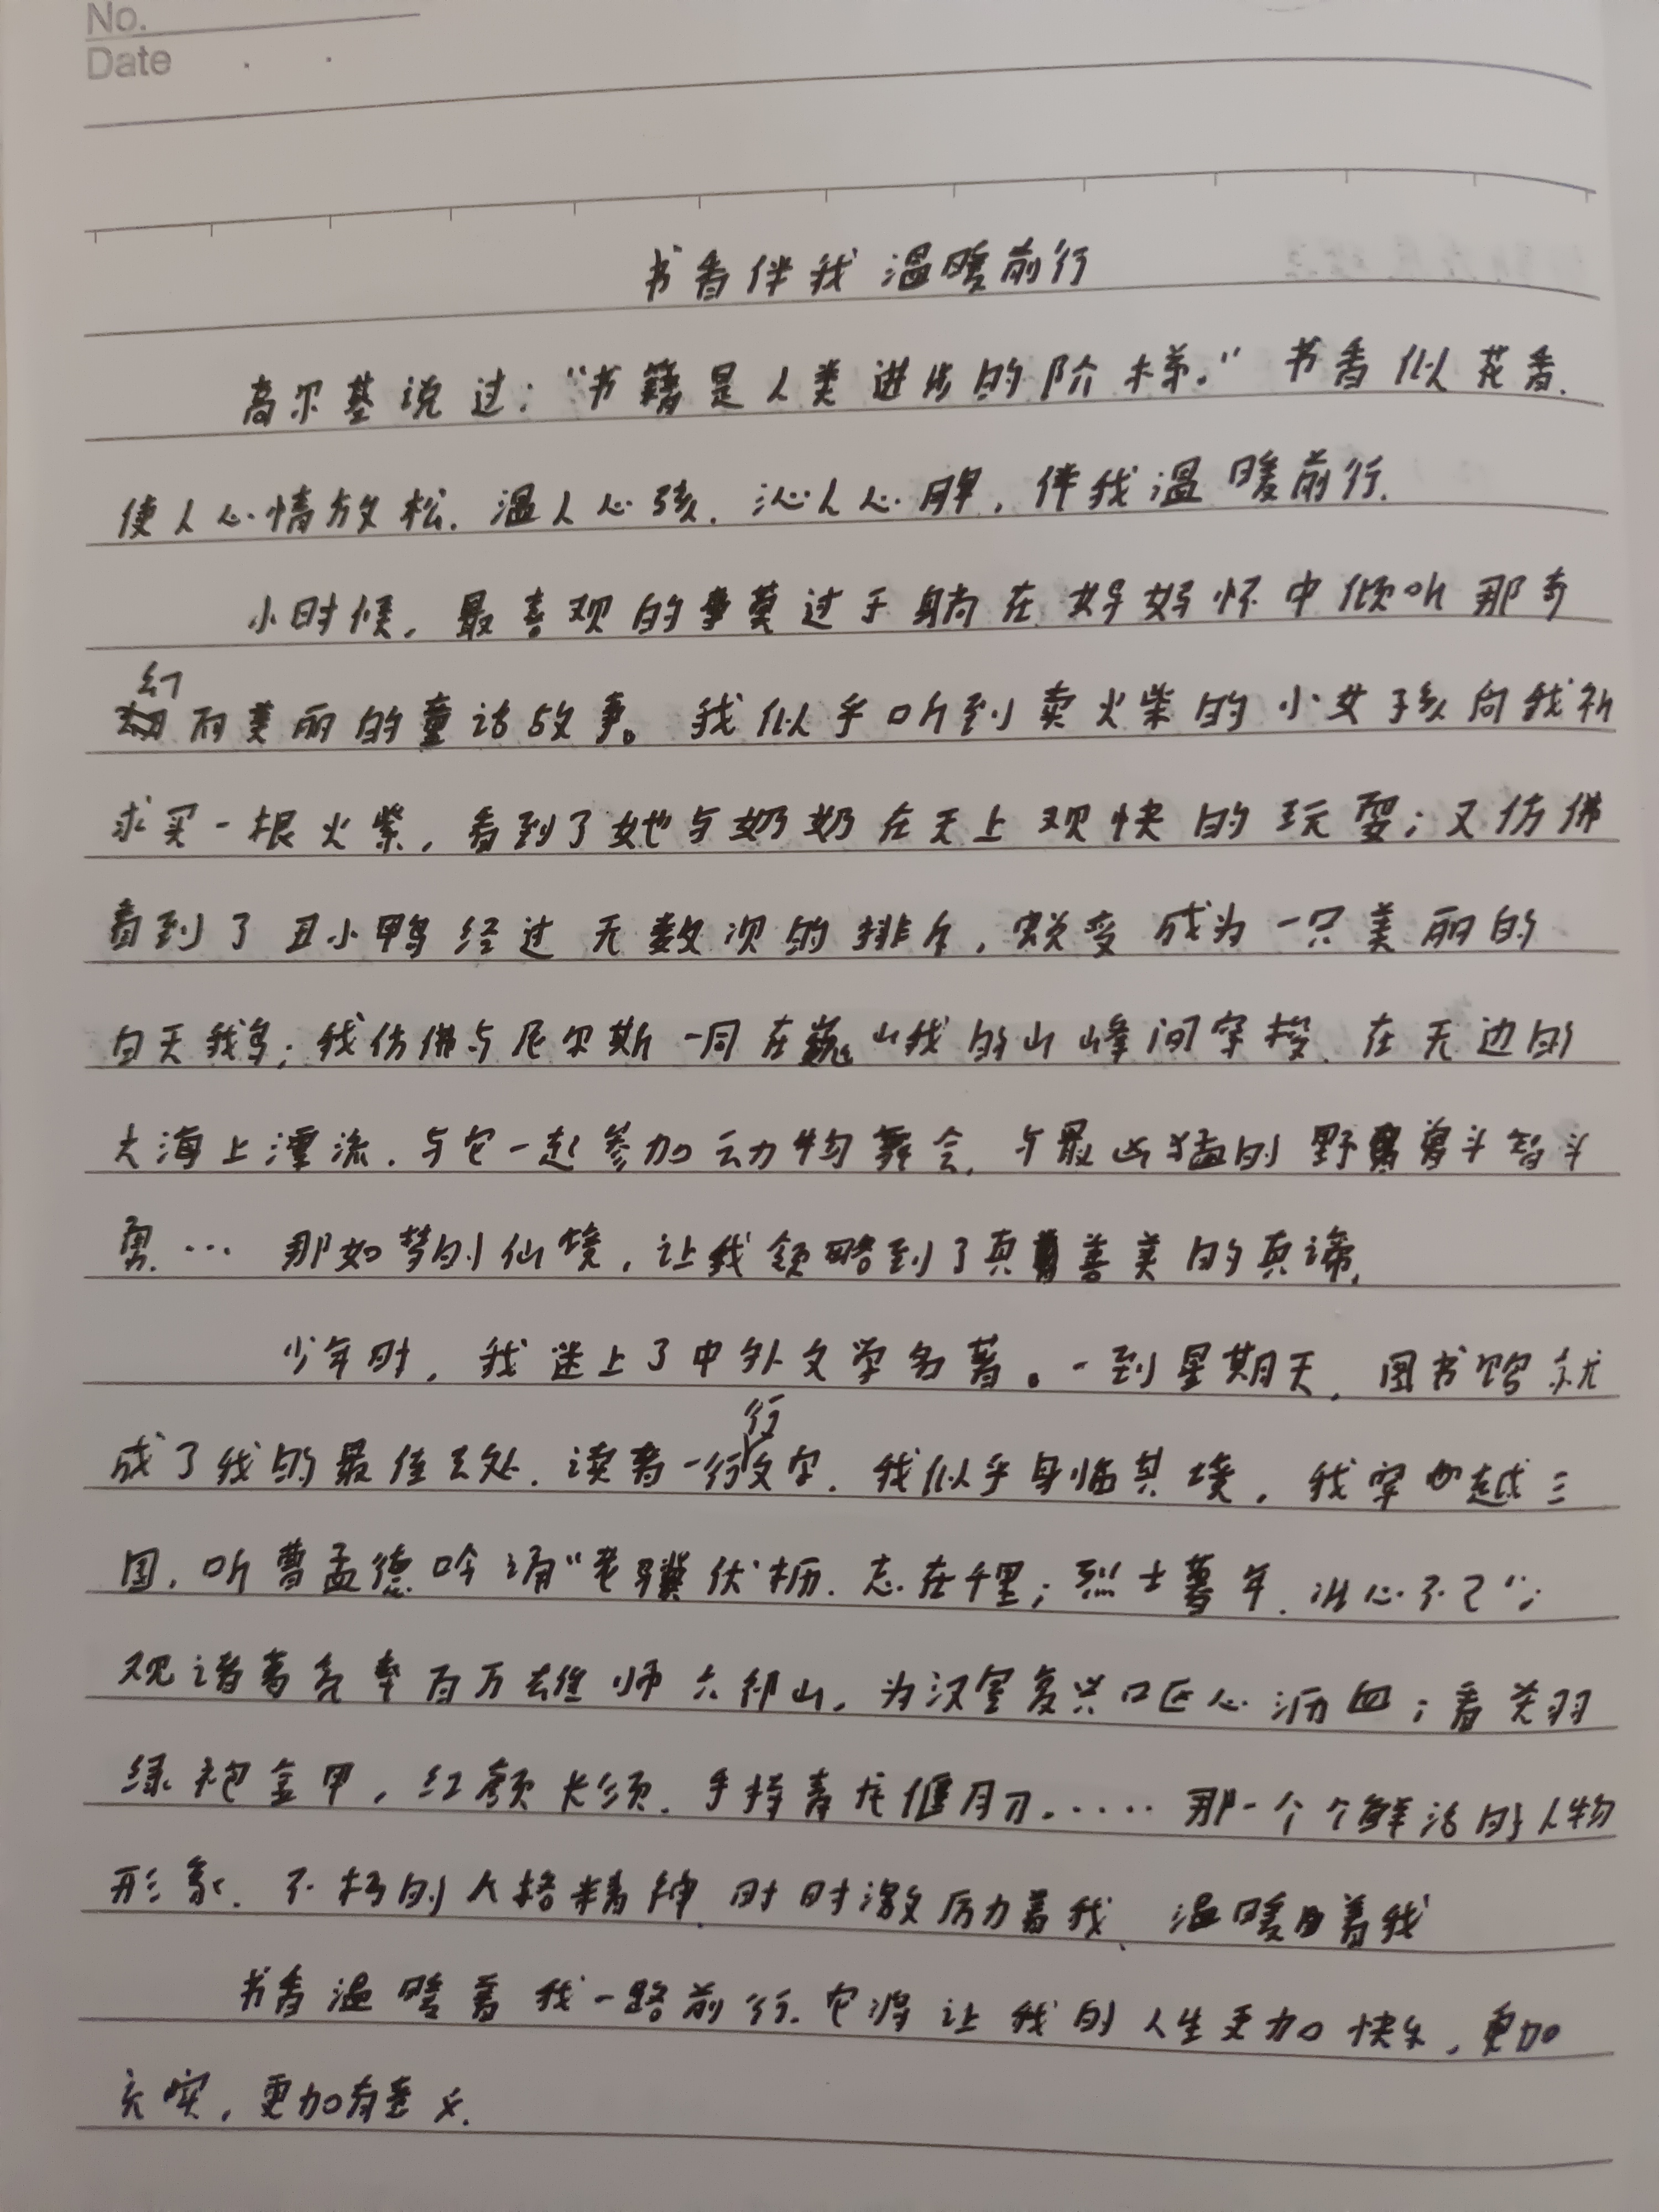 No.
Date
书香伴我温暖前行
高尔基说过："书籍是人类进步的阶梯。"书香似花香.
使人心情放松.温人心孩.沁人心脾,伴我温暖前行.
小时候,最喜观的事莫过于躺在妈妈怀中倾听那奇
幻而美丽的童话故事。我似乎听到卖火柴的小女孩向我祈
求买一根火柴,看到了她与奶奶在天上欢快的玩耍;又仿佛
看到了丑小鸭经过无数次的排斥,蜕变成为一只美丽的
白天鹅;我仿佛与尼尔斯一同在巍峨的山峰间穿梭.在无边的
大海上漂流.与它一起参加动物舞会,与最凶猛的野兽斗智斗
勇…那如梦的仙境,让我领略到了真善美的真谛.
少年时,我迷上了中外文学名著。一到星期天,图书馆就
成了我的最佳去处.读着一行行文字.我似乎身临其境,我穿越三
国,听曹孟德吟诵"老骥伏枥.志在千里;烈士暮年.壮心不已";
观诸葛亮率百万雄师六祁山,为汉室复兴呕心沥血;看关羽
绿袍金甲,红颜长须.手持青龙偃月刀……那一个个鲜活的人物
形象.不朽的人格精神,时时激励着我、温暖着我
书香温暖着我一路前行.它将让我的人生更加快乐,更加
充实,更加有意义.